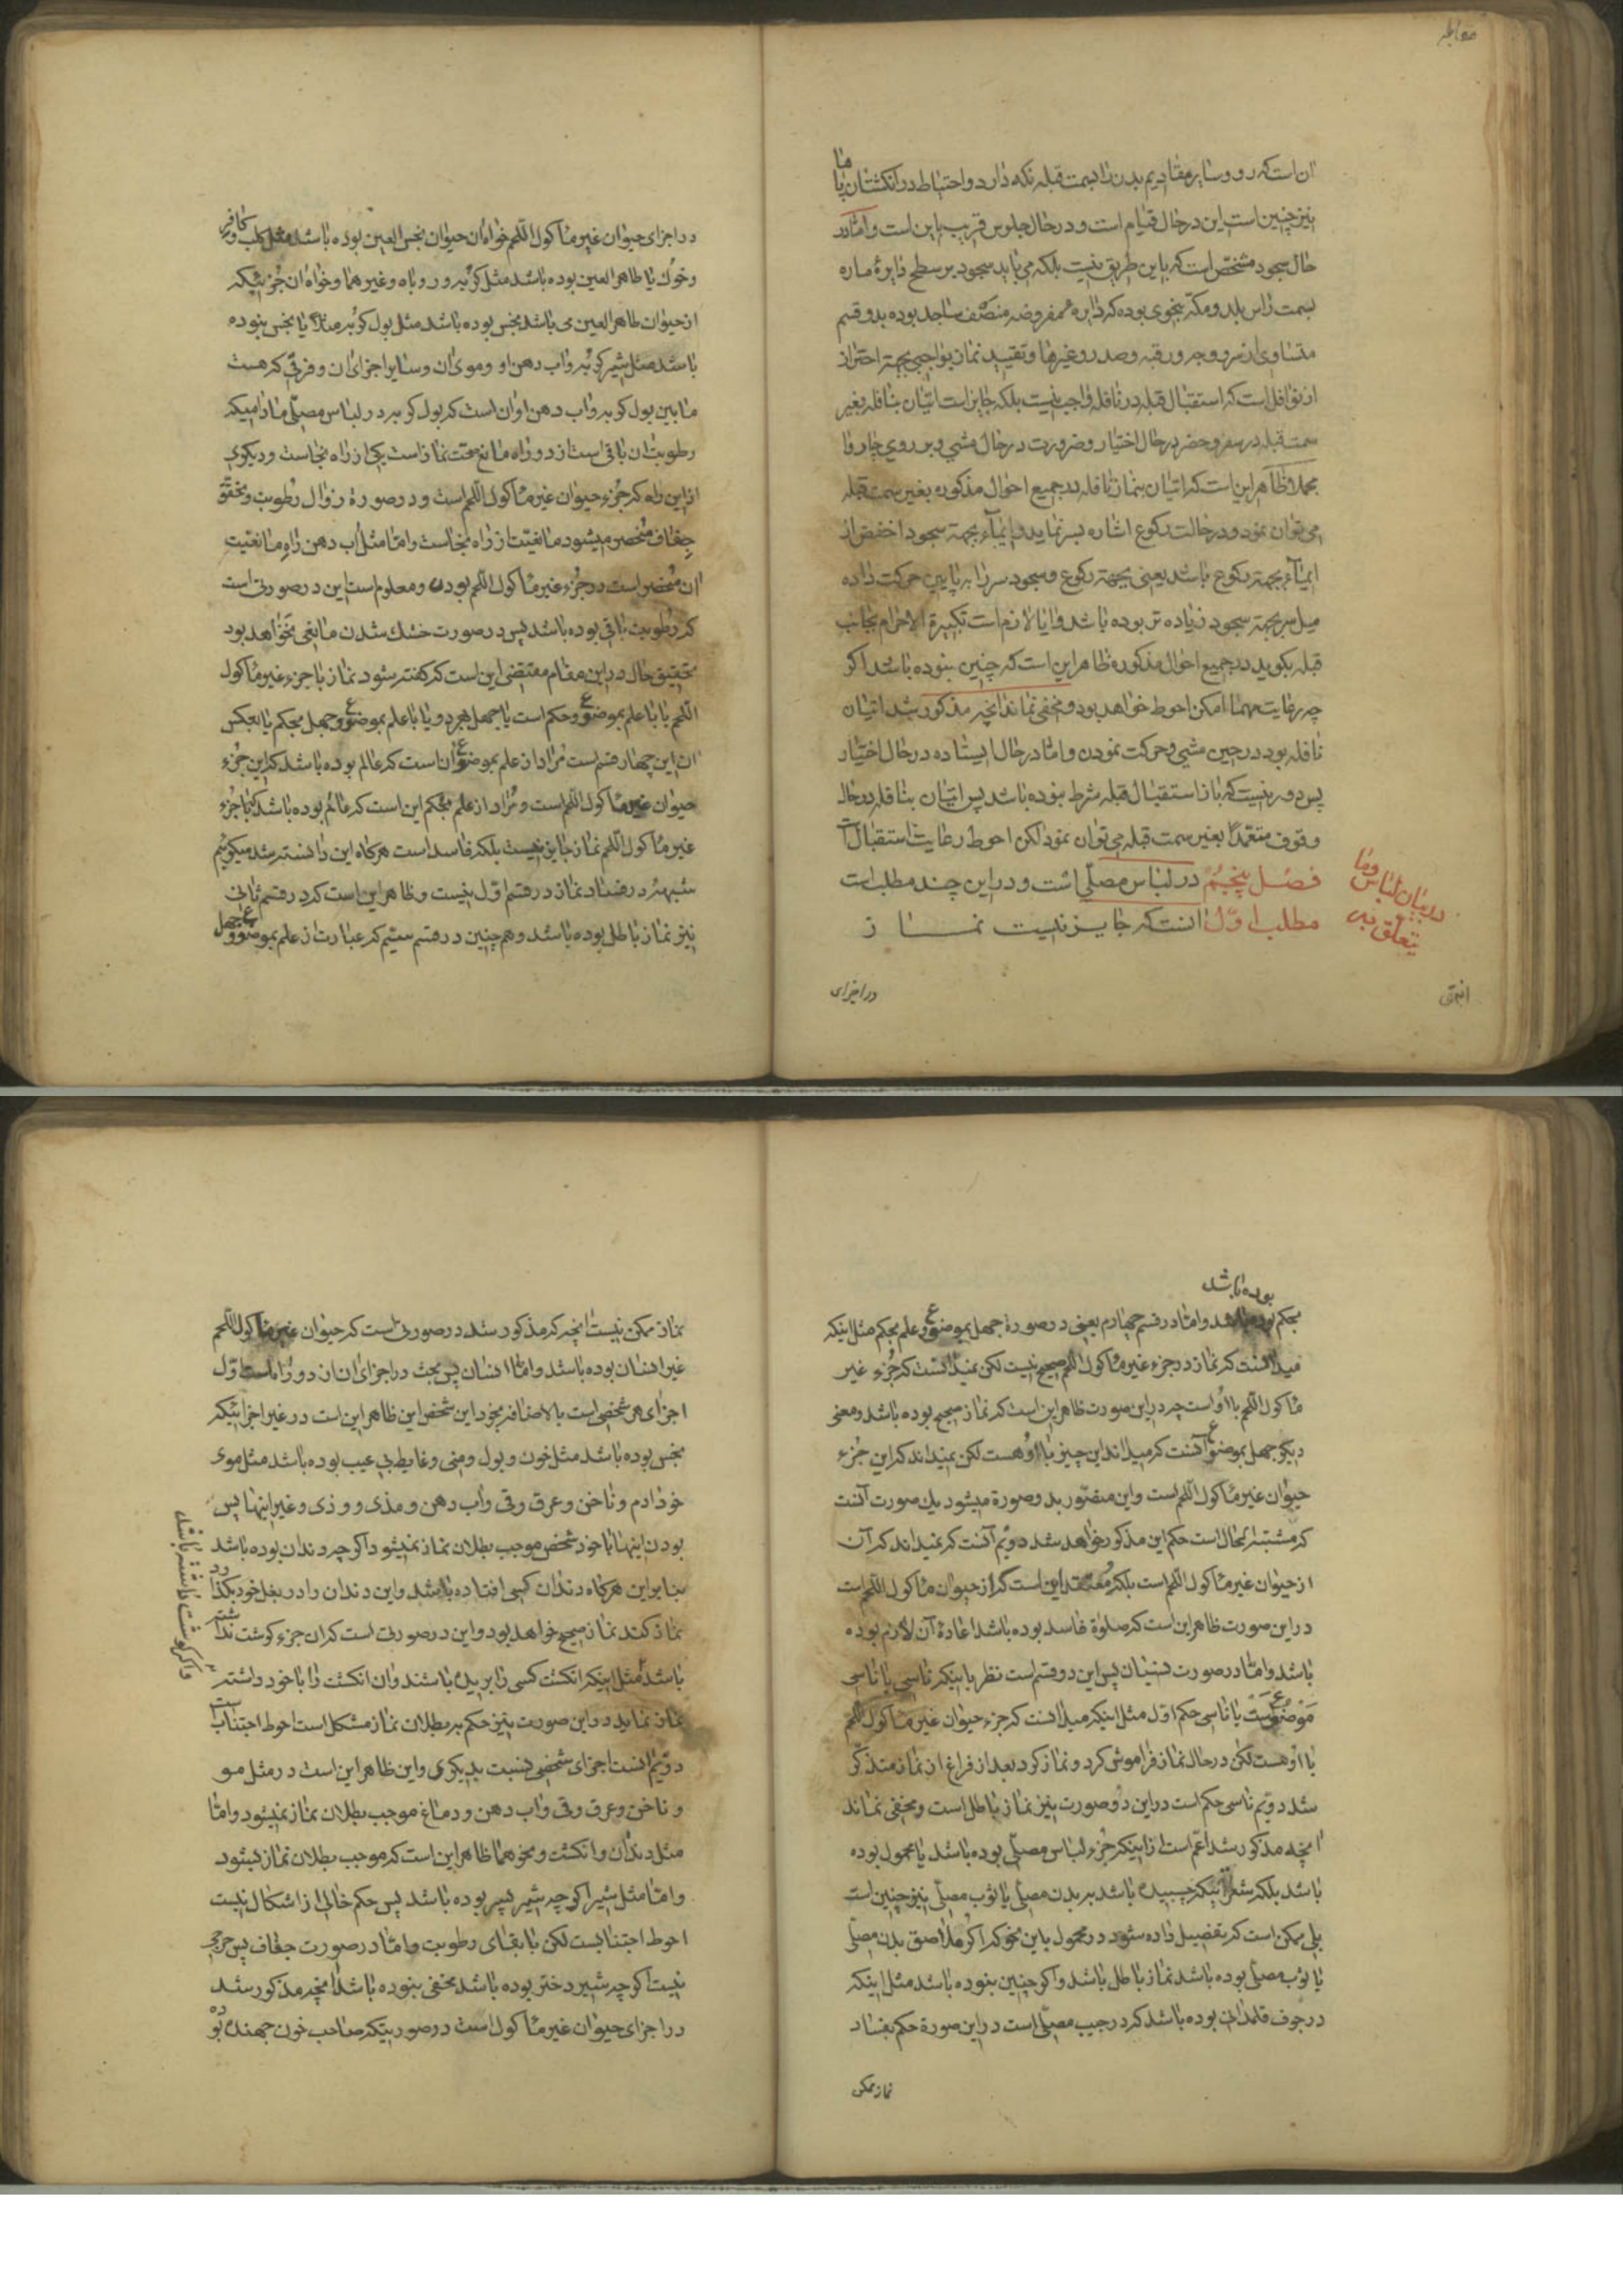 مقابله
ان است که رو و سایر مقادیم بدن را بسمت قبله نکه دارد و احتیاط در انکشتان پا ها
نیز چنین است این در حال قیام است و در حال جلوس قریب باین است و اما در
حال سجود مشخص است که باین طریق نیست بلکه می باید سجود بر سطح دایرهٔ ماره
بسمت راس بلد و مکه بنحوی بوده که دایره مفروضه منصف ساجد بوده بدو قسم
متساوی از سر و وجه و رقبه و صدر و غیرها و تقیید نماز بواجبی بجهة احتراز
از نوافل است که استقبال قبله در نافله واجب نیست بلکه جایز است اتیان بنافله بغیر
سمت قبله در سفر و حضر در حال اختیار و ضرورت در حال مشی و بر روی چاروا
مجملا ظاهر این است که اتیان بنماز نافله در جمیع احوال مذکوره بغیر سمت قبله
می توان نمود و در حالت رکوع اشاره بسر نماید و ایماء بجهة سجود اخفض از
ایماء بجهة رکوع باشد یعنی بجهة رکوع و سجود سر را به پایین حرکت داده
میل سر بجهة سجود زیاده تر بوده باشد و ایا لازم است تکبیرة الاحرام بجانب
قبله بکوید در جمیع احوال مذکوره ظاهر این است که چنین نبوده باشد اکر
چه رعایت مهما امکن احوط خواهد بود و مخفی نماند انچه مذکور شد اتیان
نافله بود در حین مشی و حرکت نمودن و اما در حال ایستاده در حال اختیار
پس دور نیست که باز استقبال قبله شرط نبوده باشد پس اتیان بنافله در حال
وقوف متعمدا بغیر سمت قبله می توان نمود لکن احوط رعایت استقبال است
فصل پنجم در لباس مصلی است و در این چند مطلب است
در بیان لباس و ما یتعلق به
مطلب اول انست که جایز نیست نماز
در اجزای
در اجزای حیوان غیر ماکول اللحم خواه ان حیوان نجس العین بوده باشد مثل کلب و کافر
و خوک یا طاهر العین بوده باشد مثل کربه و روباه و غیر هما و خواه ان جزئیکه
از حیوان طاهر العین می باشد نجس بوده باشد مثل بول کربه مثلا یا نجس نبوده
باشد مثل شیر کربه و اب دهن او و موی ان و سایر اجزای ان و فرقی که هست
مابین بول کربه و اب دهن او ان است که بول کربه در لباس مصلی مادامیکه
رطوبت ان باقی است از دو راه مانع صحت نماز است یکی از راه نجاست و دیکری
از این راه که جزء حیوان غیر ماکول اللحم است و در صورة زوال رطوبت و تحقق
جفاف منحصر میشود مانعیت از راه نجاست و اما مثل اب دهن راه مانعیت
ان منحصر است در جزء غیر ماکول اللحم بودن و معلوم است این در صورتی است
که رطوبت باقی بوده باشد پس در صورت خشک شدن مانعی نخواهد بود
تحقیق حال در این مقام مقتضی این است که کفته شود نماز با جزء غیر ماکول
اللحم یا با علم بموضوع و حکم است یا جهل بهر دو یا با علم بموضوع و جهل بحکم یا بعکس
ان این چهار قسم است مراد از علم بموضوع ان است که عالم بوده باشد که این جزء
حیوان غیر ماکول اللحم است و مراد از علم بحکم این است که عالم بوده باشد که با جزء
غیر ماکول اللحم نماز جایز نیست بلکه فاسد است هرکاه این دانسته شد میکوئیم
شبهه در فساد نماز در قسم اول نیست و ظاهر این است که در قسم ثانی
نیز نماز باطل بوده باشد و هم چنین در قسم سیم که عبارت از علم بموضوع و جهل
بحکم بوده باشد و اما در قسم چهارم یعنی در صورة جهل بموضوع و علم بحکم مثل اینکه
میدانست که نماز در جزء غیر ماکول اللحم صحیح نیست لکن نمیدانست که جزء غیر
ماکول اللحم با او است چه در این صورت ظاهر این است که نماز صحیح بوده باشد و معنی
دیکر جهل بموضوع آنست که میداند این چیز با او هست لکن نمیداند که این جزء
حیوان غیر ماکول اللحم است و این متصور بدو صورة میشود یک صورت آنست
که مشتبه الحال است حکم این مذکور خواهد شد دویم آنست که نمیداند که آن
از حیوان غیر ماکول اللحم است بلکه معتقد این است که از حیوان ماکول اللحم است
در این صورت ظاهر این است که صلوة فاسد بوده باشد اعادهٔ آن لازم بوده
باشد و اما در صورت نسیان پس این دو قسم است نظر باینکه ناسی یا ناسی
موضوعست یا ناسی حکم اول مثل اینکه میدانست که جزء حیوان غیر ماکول اللحم
با او هست لکن در حال نماز فراموش کرد و نماز کرد بعد از فراغ از نماز متذکر
شد دویم ناسی حکم است در این دو صورت نیز نماز باطل است و مخفی نماند
انچه مذکور شد اعم است از اینکه جزء لباس مصلی بوده باشد یا محمول بوده
باشد بلکه شعراتیکه چسبیده باشد بر بدن مصلی یا ثوب مصلی نیز چنین است
بلی ممکن است که تفصیل داده شود در محمول باین نحو که اکر ملاصق بدن مصلی
یا ثوب مصلی بوده باشد نماز باطل باشد و اکر چنین نبوده باشد مثل اینکه
در جوف قلمدانی بوده باشد که در جیب مصلی است در این صورة حکم بفساد
نماز ممکن
نماز ممکن نیست انچه که مذکور شد در صورتی است که حیوان غیر ماکول اللحم
غیر انسان بوده باشد و اما انسان پس بحث در اجزای ان از دو راه است اول
اجزای هر شخصی است بالاضافه بخود این شخص این ظاهر این است در غیر اجزائیکه
نجس بوده باشد مثل خون و بول و منی و غایط بی عیب بوده باشد مثل موی
خود ادم و ناخن و عرق و قی و آب دهن و مذی و وذی و غیر اینها پس
بودن اینها با خود شخص موجب بطلان نماز نمیشود اکر چه دندان بوده باشد
بنا بر این هرکاه دندان کسی افتاده باشد و این دندان را در بغل خود بکذارد
نماز کند نماز صحیح خواهد بود و این در صورتی است که ان جزء کوشت نداشته
و اکر کوشت داشته باشد
باشد مثل اینکه انکشت کسی را بریده باشند و ان انکشت را با خود داشته
نماز نماید در این صورت نیز حکم بر بطلان نماز مشکل است احوط اجتناب است
دویم انست اجزای شخصی نسبت بدیکری و این ظاهر این است در مثل مو
و ناخن و عرق و قی و اب دهن و دماغ موجب بطلان نماز نمیشود و اما
مثل دندان و انکشت و نحو هما ظاهر این است که موجب بطلان نماز میشود
و اما مثل شیر اکر چه شیر پسر بوده باشد پس حکم خالی از اشکال نیست
احوط اجتنابست لکن با بقای رطوبت و اما در صورت جفاف پس حرجی
نیست اکر چه شیر دختر بوده باشد مخفی نبوده باشد انچه مذکور شد
در اجزای حیوان غیر ماکول است در صورتیکه صاحب خون جهنده بوده